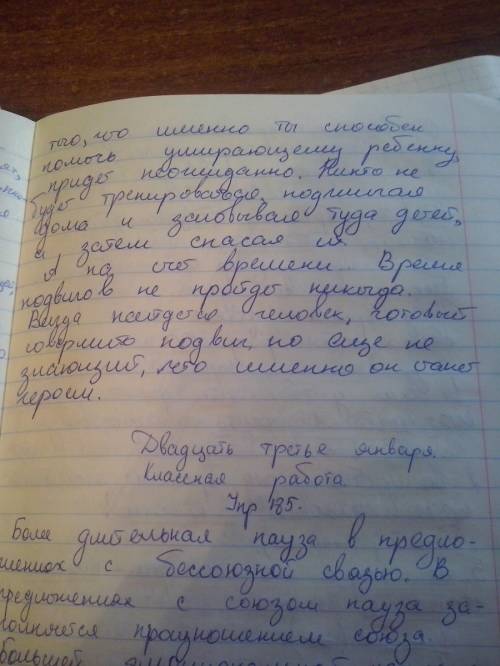 того, что именно ты способен
помочь умирающему ребенку,
придет неожиданно. Никто не
будет тренироваться, поджигая
дома и заковывая туда детей,
а затем спасая их.
А на счет времени... Время
подвигов не пройдет никогда.
Всегда найдется человек, готовый
совершить подвиг, но еще не
знающий, что именно он станет
героем.
Двадцать третье января.
Классная работа
Упр 185.
Более длительная пауза в предло-
жениях с бессоюзной связью. В
предложениях с союзом пауза за-
полняется произношением союза.
большей